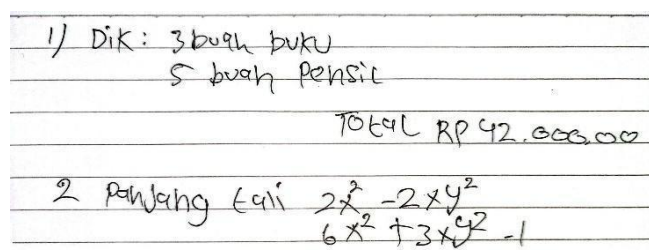 1) Dik : 3 buah buku
5 buah Pensil
Total RP 42.000,00
2 Panjang tali 2x² - 2xy²
6x² + 3xy² - 1